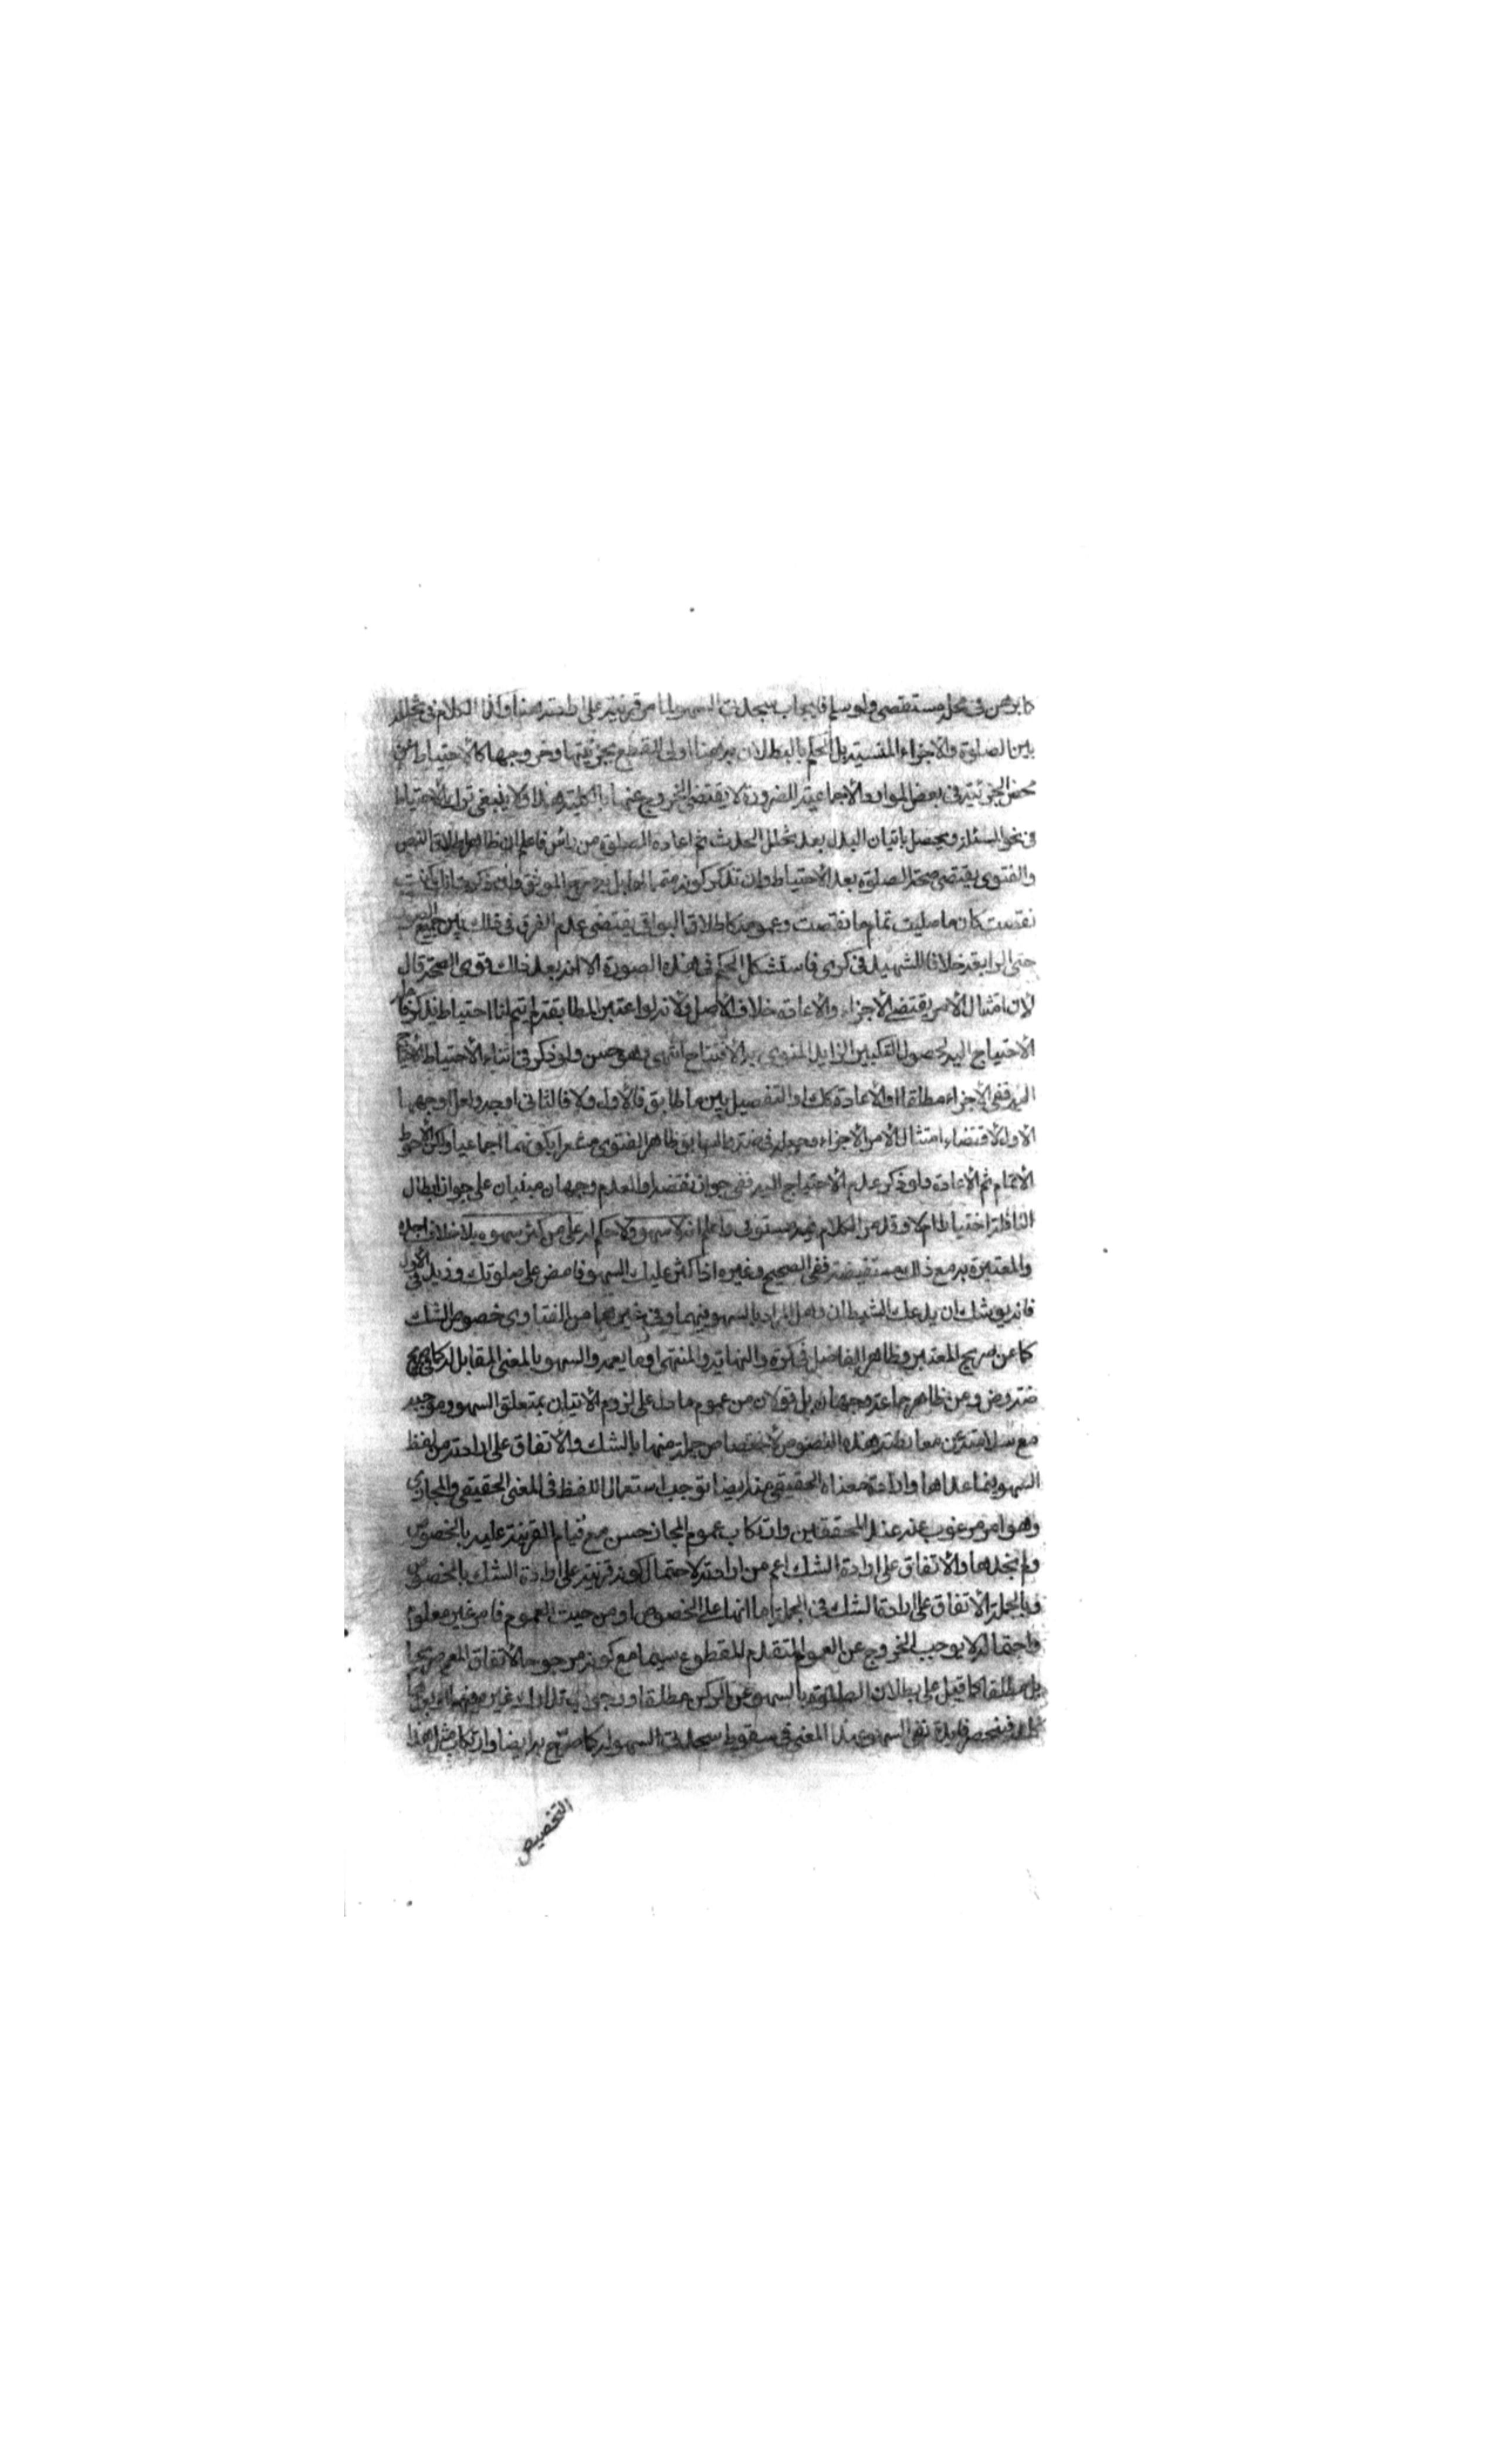 كما برهن في محله مستقصى ولو سلم فايجاب سجدتي السهو لها من قرينة على ارادته هنا وكذا الكلام في تخلله
بين الصلوة والاجزاء المنسية بل الحكم بالبطلان به هنا اولى للقطع بجزئيتها وخروجها كالاحتياط عن
محض الجزئية في بعض المواد الاجماعية للضرورة لا يقتضي الخروج عنها بالكلية هذا ولا ينبغي ترك الاحتياط
في نحو المسئلة ويحصل باتيان البدل بعد تخلل الحدث ثم اعادة الصلوة من رأس فاعلم ان ظاهر اطلاق النص
والفتوى يقتضي صحة الصلوة بعد الاحتياط وان تذكر كونه متمما لها بل صريح الموثق وان ذكرت انك كنت
نقصت كان ما صليت تمام ما نقصت وعمومه كاطلاق البواقي يقتضي عدم الفرق في ذلك بين جميع الصور
حتى الرابعة خلافا للشهيد في كرى فاستشكل الحكم في هذه الصورة الا انه بعد ذلك قوى الصحة قال
لان امتثال الامر يقتضي الاجزاء والاعادة خلاف الاصل ولانه لو اعتبر المطابقة لم يتم لنا احتياط يذكر فاعله
الاحتياج اليه لحصول التكبير الزايد المنوي به الافتتاح انتهى وهو حسن ولو ذكر في اثناء الاحتياط الاحتياج
اليه ففي الاجزاء مطلقا او الاعادة كك او التفصيل بين ما طابق فالاول ولا فالثاني اوجه ولعل اوجهها
الاول لاقتضاء امتثال الامر الاجزاء وجعله في ضة مما يظاهر الفتوى مشعرا بكونه اجماعيا ولكن الاحوط
الاتمام ثم الاعادة ولو ذكر عدم الاحتياج اليه ففي جواز نقضه والعدم وجهان مبنيان على جواز ابطال
النافلة اختيارا ام لا وقد مر الكلام فيه مستوفى واعلم انه لا سهو ولا حكم له على من كثر سهوه بلا خلاف اجده
والمعتبرة به مع ذلك مستفيضة ففي الصحيح وغيره اذا كثر عليك السهو فامض على صلوتك وزيد في الاول
فانه يوشك ان يدعك الشيطان وهل المراد بالسهو فيهما وفي غيرهما من الفتاوى خصوص الشك
كما عن صريح المعتبر وظاهر الفاضل في كرة والنهاية والمنتهى او ما يعمه والسهو بالمعنى المقابل له كما في صريح
ضة وض وعن ظاهر جماعة وجهان بل قولان من عموم ما دل على لزوم الاتيان بمتعلق السهو وموجبه
مع سلامته عن معارضة هذه النصوص لاختصاص جملة منها بالشك والاتفاق على ارادته من لفظ
السهو فيما عداها وارادة معناه الحقيقي منه ايضا توجب استعمال اللفظ في المعنى الحقيقي والمجازي
وهو امر مرغوب عنه عند المحققين وارتكاب عموم المجاز حسن مع قيام القرينة عليه بالخصوص
ولم نجدها والاتفاق على ارادة الشك اعم من ارادته لاحتمال كونه قرينة على ارادة الشك بالخصوص
وبالجملة الاتفاق على ارادة الشك في الجملة اما انها على الخصوص او من حيث العموم فامر غير معلوم
واحتماله لا يوجب الخروج عن العموم المتقدم المقطوع سيما مع كونه مرجوحا لاتفاق المعمم صريحا
بل مطلقا كما قيل على بطلان الصلوة بالسهو عن الركن مطلقا ووجوب تدارك غيره
فينحصر فايدة نفي السهو بهذا المعنى في سقوط سجدتي السهو له كما صرح به ايضا وارتكاب مثل هذا
التخصيص